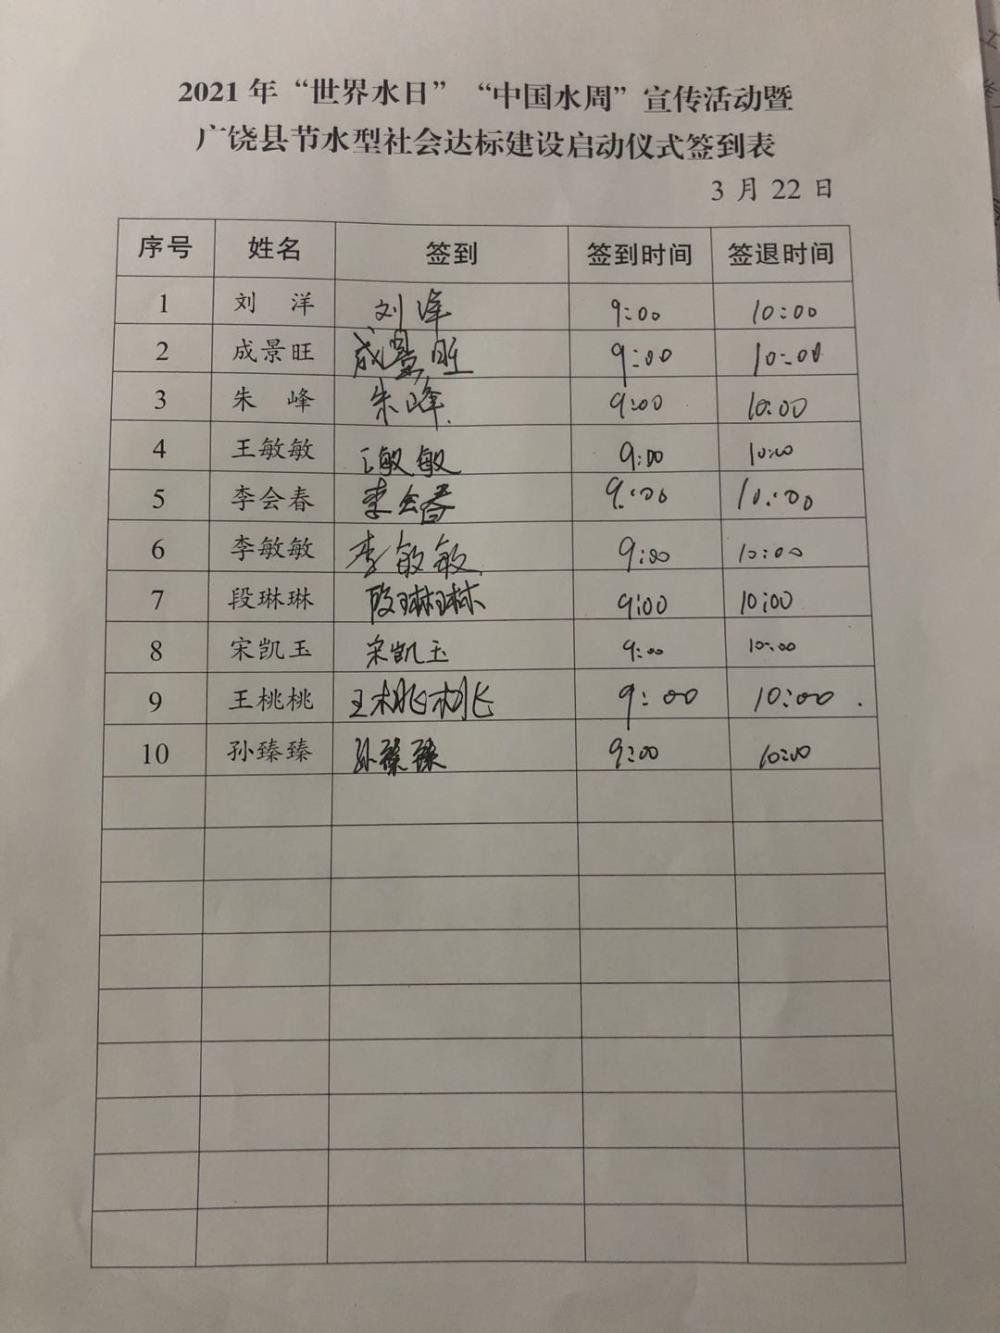 2021 年 “世界水日” “中国水周” 宣传活动暨
广饶县节水型社会达标建设启动仪式签到表
3 月 22 日
序号 姓名 签到 签到时间 签退时间
1 刘 洋 刘洋 9:00 10:00
2 成景旺 成景旺 9:00 10:00
3 朱 峰 朱峰 9:00 10:00
4 王敏敏 王敏敏 9:00 10:00
5 李会春 李会春 9:00 10:00
6 李敏敏 李敏敏 9:00 10:00
7 段琳琳 段琳琳 9:00 10:00
8 宋凯玉 宋凯玉 9:00 10:00
9 王桃桃 王桃桃 9:00 10:00
10 孙臻臻 孙臻臻 9:00 10:00